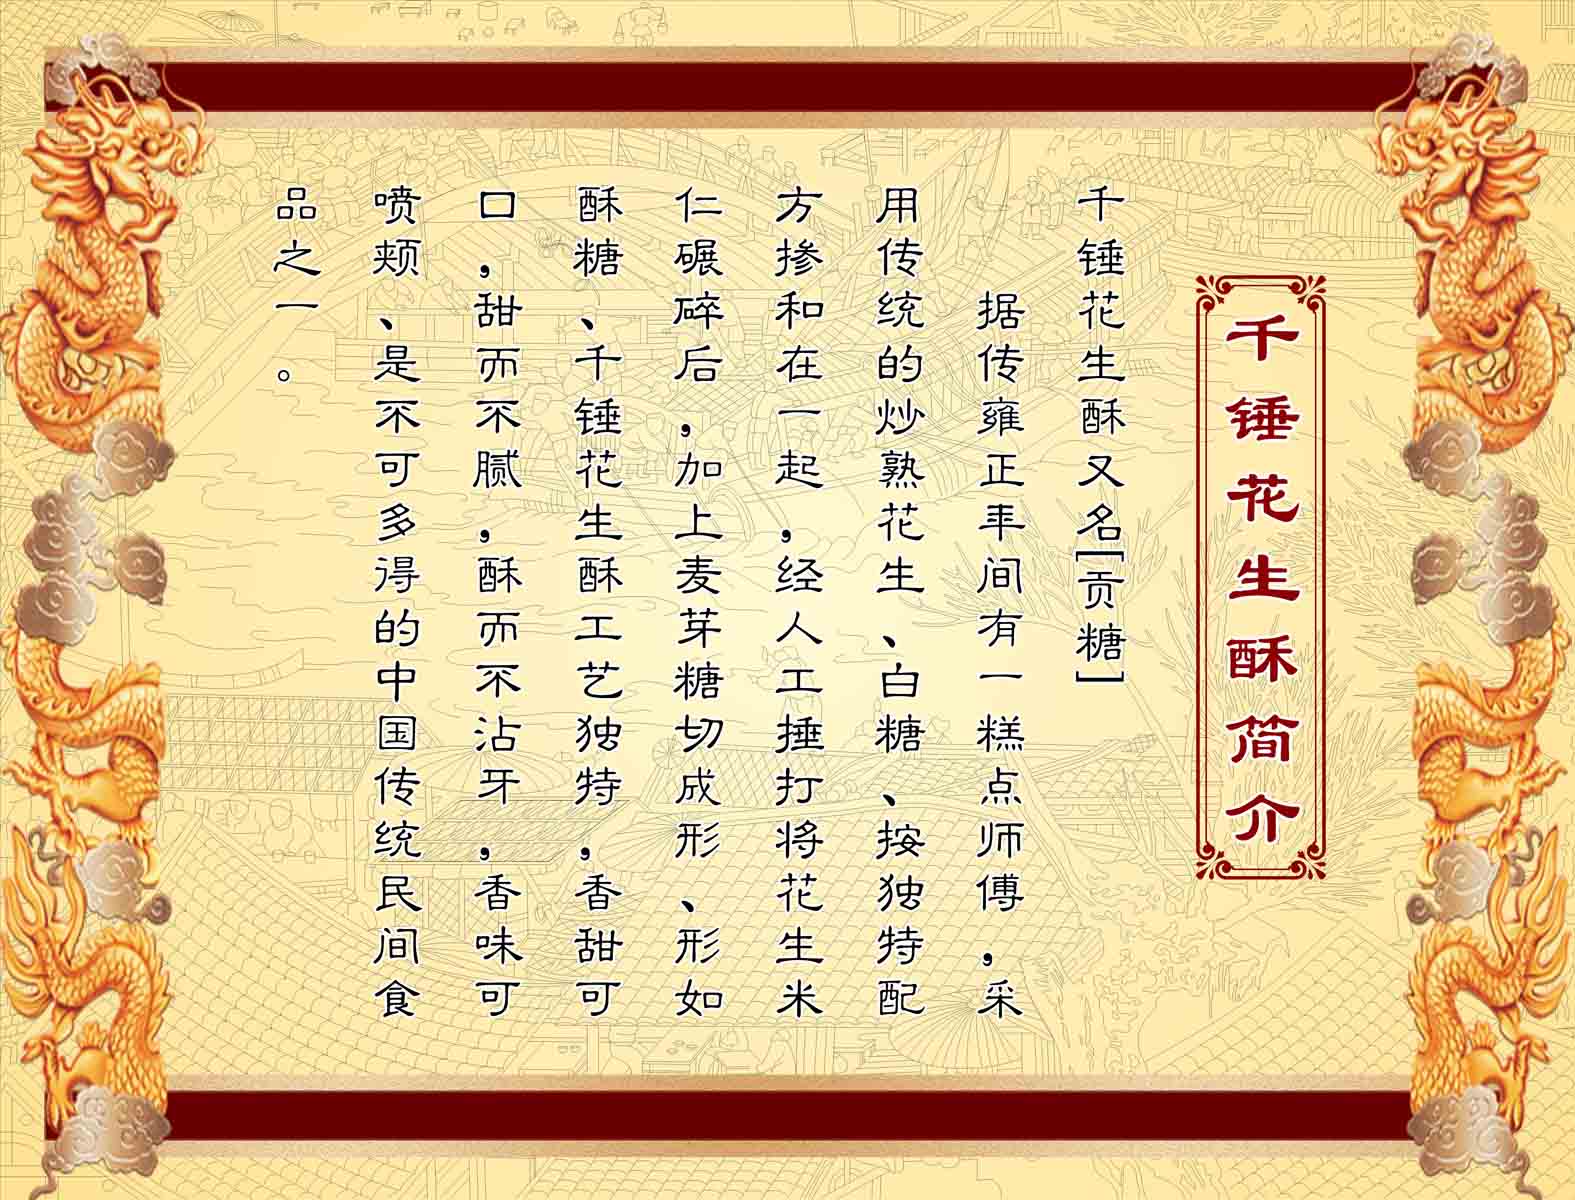 千锤花生酥简介
千锤花生酥又名[贡糖]
据传雍正年间有一糕点师傅，采
用传统的炒熟花生、白糖、按独特配
方掺和在一起，经人工捶打将花生米
仁碾碎后，加上麦芽糖切成形、形如
酥糖、千锤花生酥工艺独特，香甜可
口，甜而不腻，酥而不沾牙，香味可
喷颊、是不可多得的中国传统民间食
品之一。